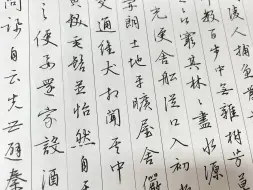 陵人捕魚
數百步中無雜樹芳草
窮其林〻盡水源
光便舍船從口入初
開朗土地平曠屋舍儼
交通雞犬相聞其中
黃髮垂髫並怡然自
之便要還家設酒
問訊自云先世避秦